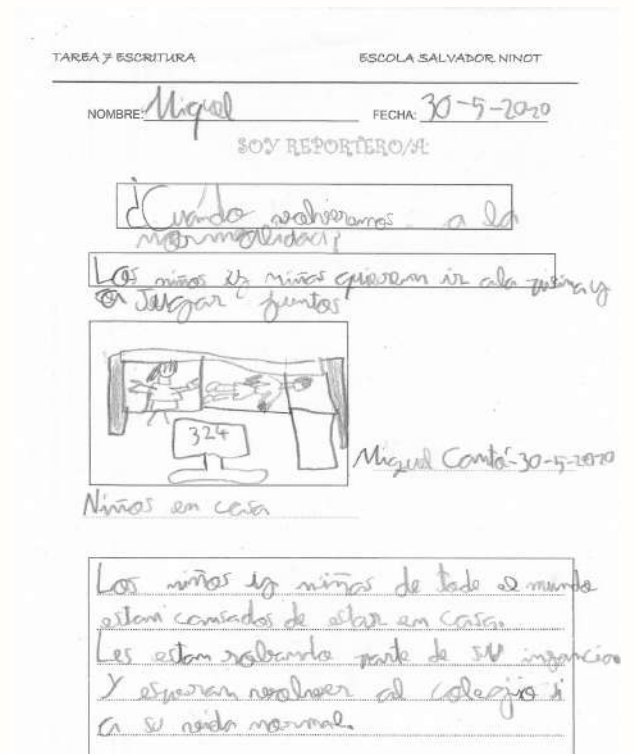 TAREA 7 ESCRITURA ESCOLA SALVADOR NINOT
NOMBRE: Miguel FECHA: 30-5-2020
SOY REPORTERO/A:
¿Cuándo volveremos a la
normalidad?
Los niños y niñas quieren ir a la piscina y
a Jugar juntos
324
Miguel Cantó-30-5-2020
Niños en casa
Los niños y niñas de todo el mundo
estan cansados de estar en casa.
Les estan robando parte de su infancia
Y esperan volver al colegio i
a su vida normal.